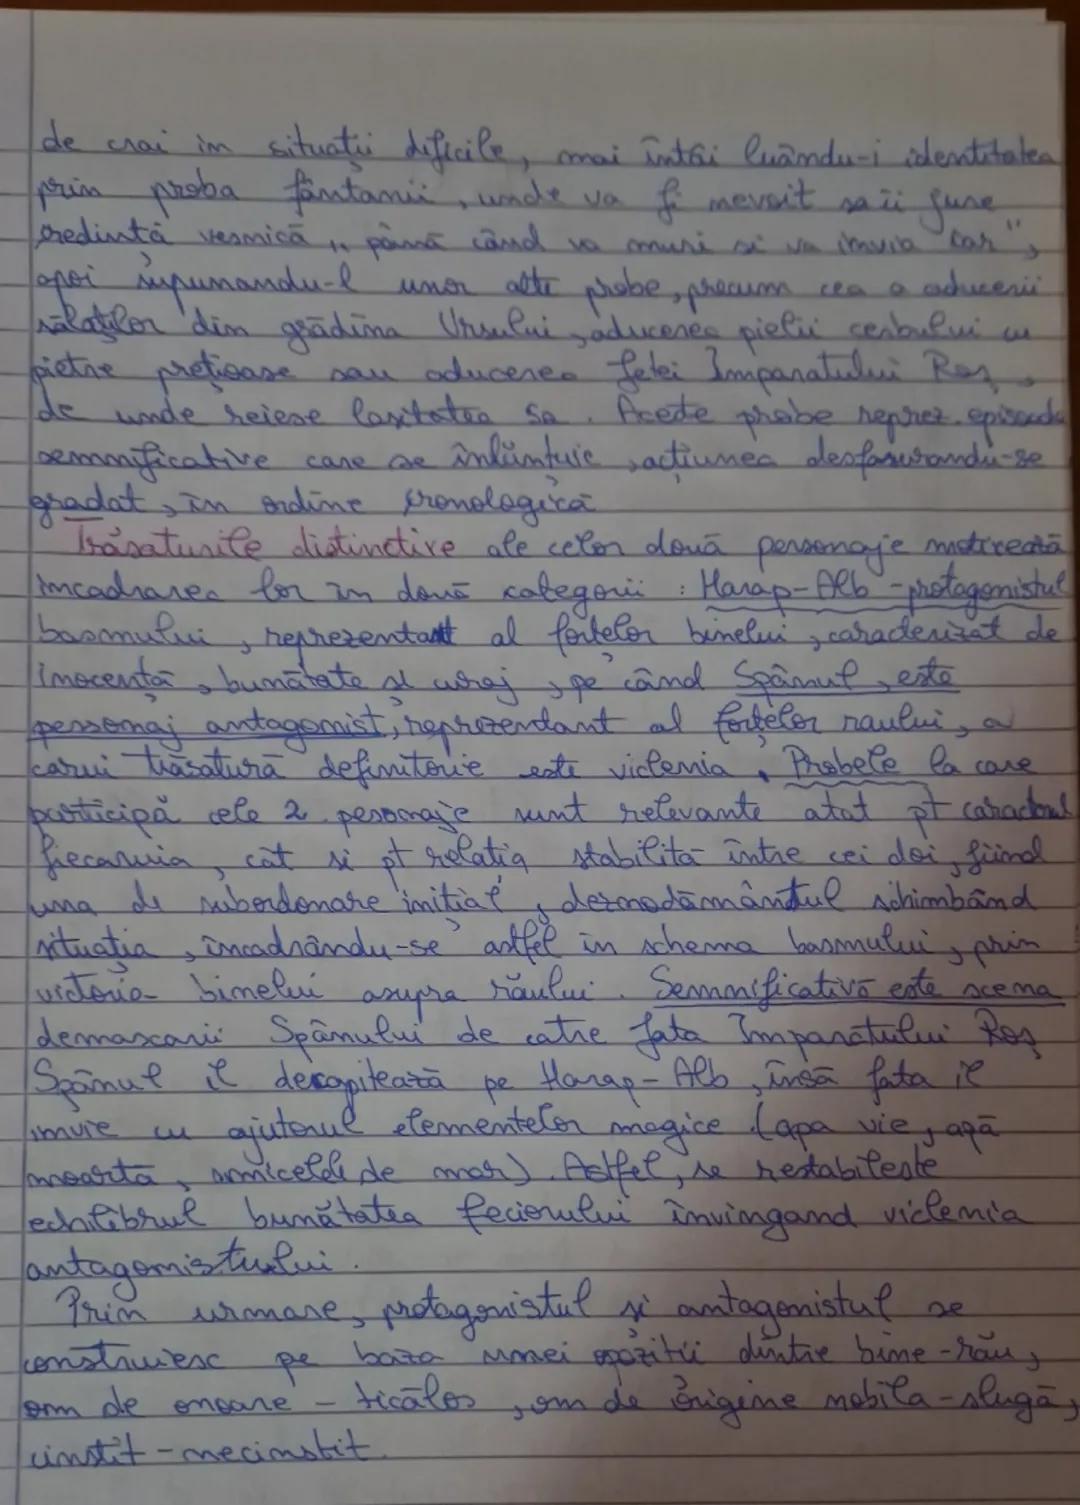 de crai in situații dificile, mai întâi luându-i identitatea
prin proba fântanii, unde va fi nevoit sa ii jure
credință vesnică „ până când va muri si va invia iar",
apoi supunandu-l unor alte probe, precum cea a aducerii
sălaților din grădina Ursului, aducerea pielii cerbului cu
pietre prețioase sau aducerea fetei Imparatului Roș,
de unde reiese lasitatea sa. Aceste probe reprez. episoade
semnificative care se înlănțuie, acțiunea desfasurandu-se
gradat, în ordine cronologică
Trăsaturile distinctive ale celor două personaje
incadrarea lor în două categorii : Harap-Alb - protagonistul
basmului, reprezentant al forțelor binelui, caracterizat de
inocență, bunătate si curaj, pe când Spânul, este
personaj antagonist, reprezendant al forțelor raului, a
carui trăsatură definitorie este viclenia. Probele la care
participă cele 2 personaje sunt relevante atat pt caracterul
fiecaruia, cât si pt relația stabilită între cei doi, fiind
una de subordonare inițial, deznodământul schimbând
situația, încadrându-se astfel în schema basmului, prin
victoria binelui asupra răului. Semnificativă este scena
demascarii Spânului de catre fata Imparatului Roș
Spânul il decapitează pe Harap-Alb, însă fata il
invie cu ajutorul elementelor magice (apa vie, apă
moartă, smicelele de mar). Astfel, se restabileste
echilibrul bunătatea feciorului învingand viclenia
antagonistului.
Prin urmare, protagonistul și antagonistul se
construiesc pe baza unei opoziții dintre bine - rău,
om de onoare - ticălos, om de origine nobila - slugă,
cinstit - necinstit.